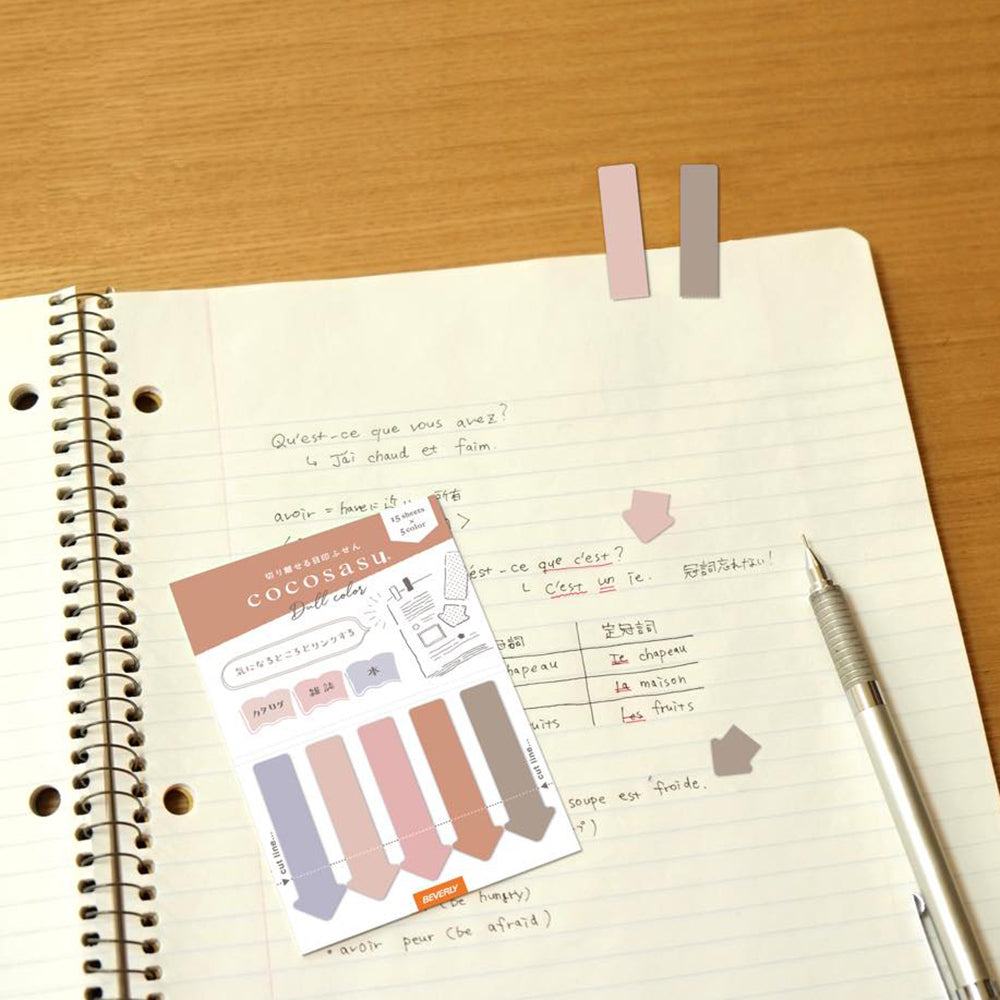 Qu'est-ce que vous avez?
↳ J'ai chaud et faim.
avoir = haveに近い 所有
>
est-ce que c'est?
↳ C'est un Te.
冠詞忘れない!
冠詞
定冠詞
hapeau
Te chapeau
la maison
uits
Les fruits
soupe est froide.
(be hungry)
• avoir peur (be afraid)
15 sheets
×
5 color
切り離せる目印ふせん
cocosasu
Dull color
気になるところどリンクする
カタログ
雑誌
本
cut line...
cut line...
BEVERLY